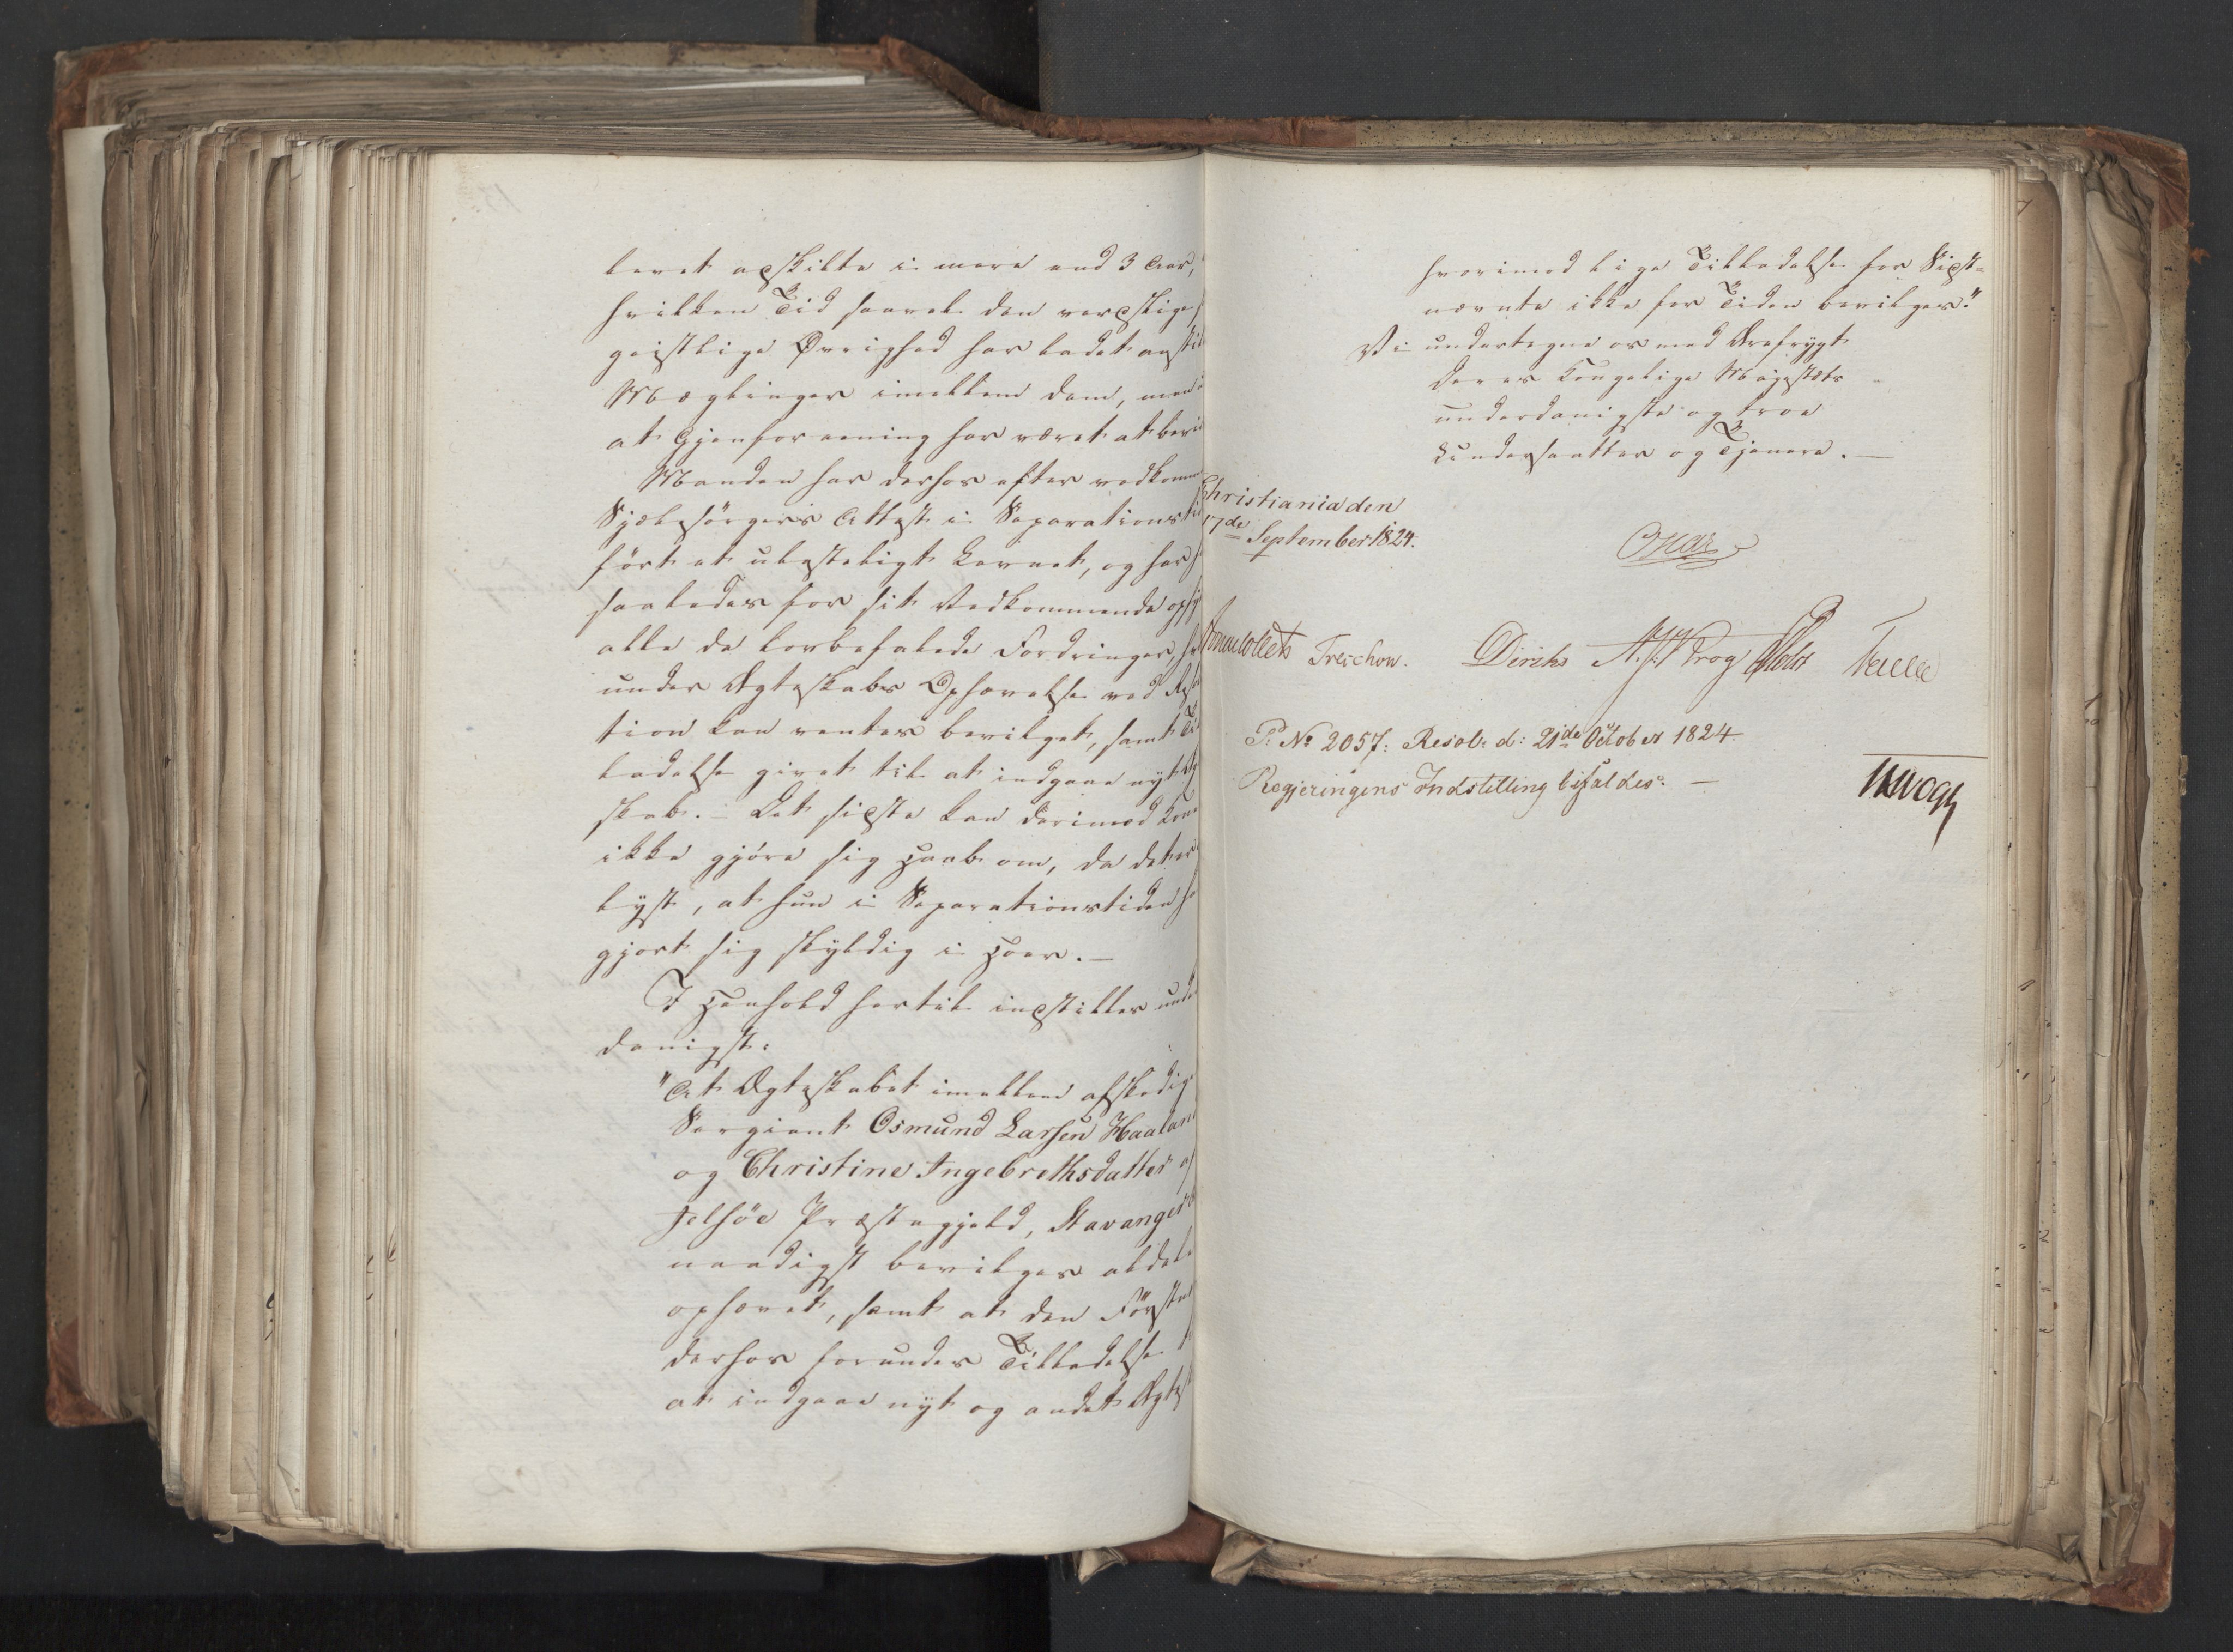 levet adskilte i mere end 3 Aar,
hvilken Tid saavel den verdslige
geistlige Øvrighed har ladet anstil
Mæglinger imellem dem, men
at Gjenforeening har været at bevi
Manden har derhos efter vedkomm
Sjælesörgers Attest i Separations
fört et ulasteligt Levnet, og har
saaledes for sit Vedkommende opfy
alle de lovbefalede Fordringer,
under Ægteskabs Ophævelse ved Resolu
tion kan ventes bevilget, samt Til
ladelse givet til at indgaae nyt Æg
skab. – Det sidste kan derimod Kone
ikke gjöre sig Haab om, da det er
lyst, at hun i Separationstiden ha
gjort sig skyldig i Hoer. –
I Henhold hertil indstilles under
danigst:
"At Ægteskabet imellem afskedig
Sergiant Osmund Larsen Haalan
og Christine Ingebrethsdatter af
Jelsöe Præstegjeld, Stavanger
naadigst bevilges aldeles
ophævet, samt at den Förste
derhos forundes Tilladelse
at indgaae nyt og andet Ægtes
hvorimod lige Tilladelse for Sidst-
nævnte ikke for Tiden bevilges."
Vi undertegne os med Ærefrygt
Deres Kongelige Majestæts
underdanigste og troe
Undersaatter og Tjenere. –
Christiania den
17de September 1824.
Oscar
Jonas Collett Treschow. Diriks A: J: Krog Holst Fasting
P: No 2057: Resol: d: 21de October 1824.
Regjeringens Indstilling bifaldes. –
Hwogh